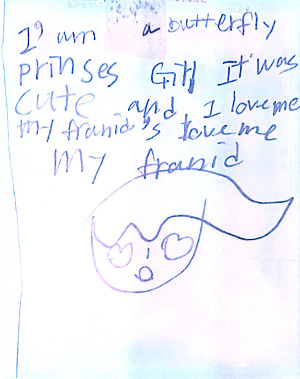 I'am a butterfly
prinses Girl It was
cute and I love me
my franid's love me
my franid